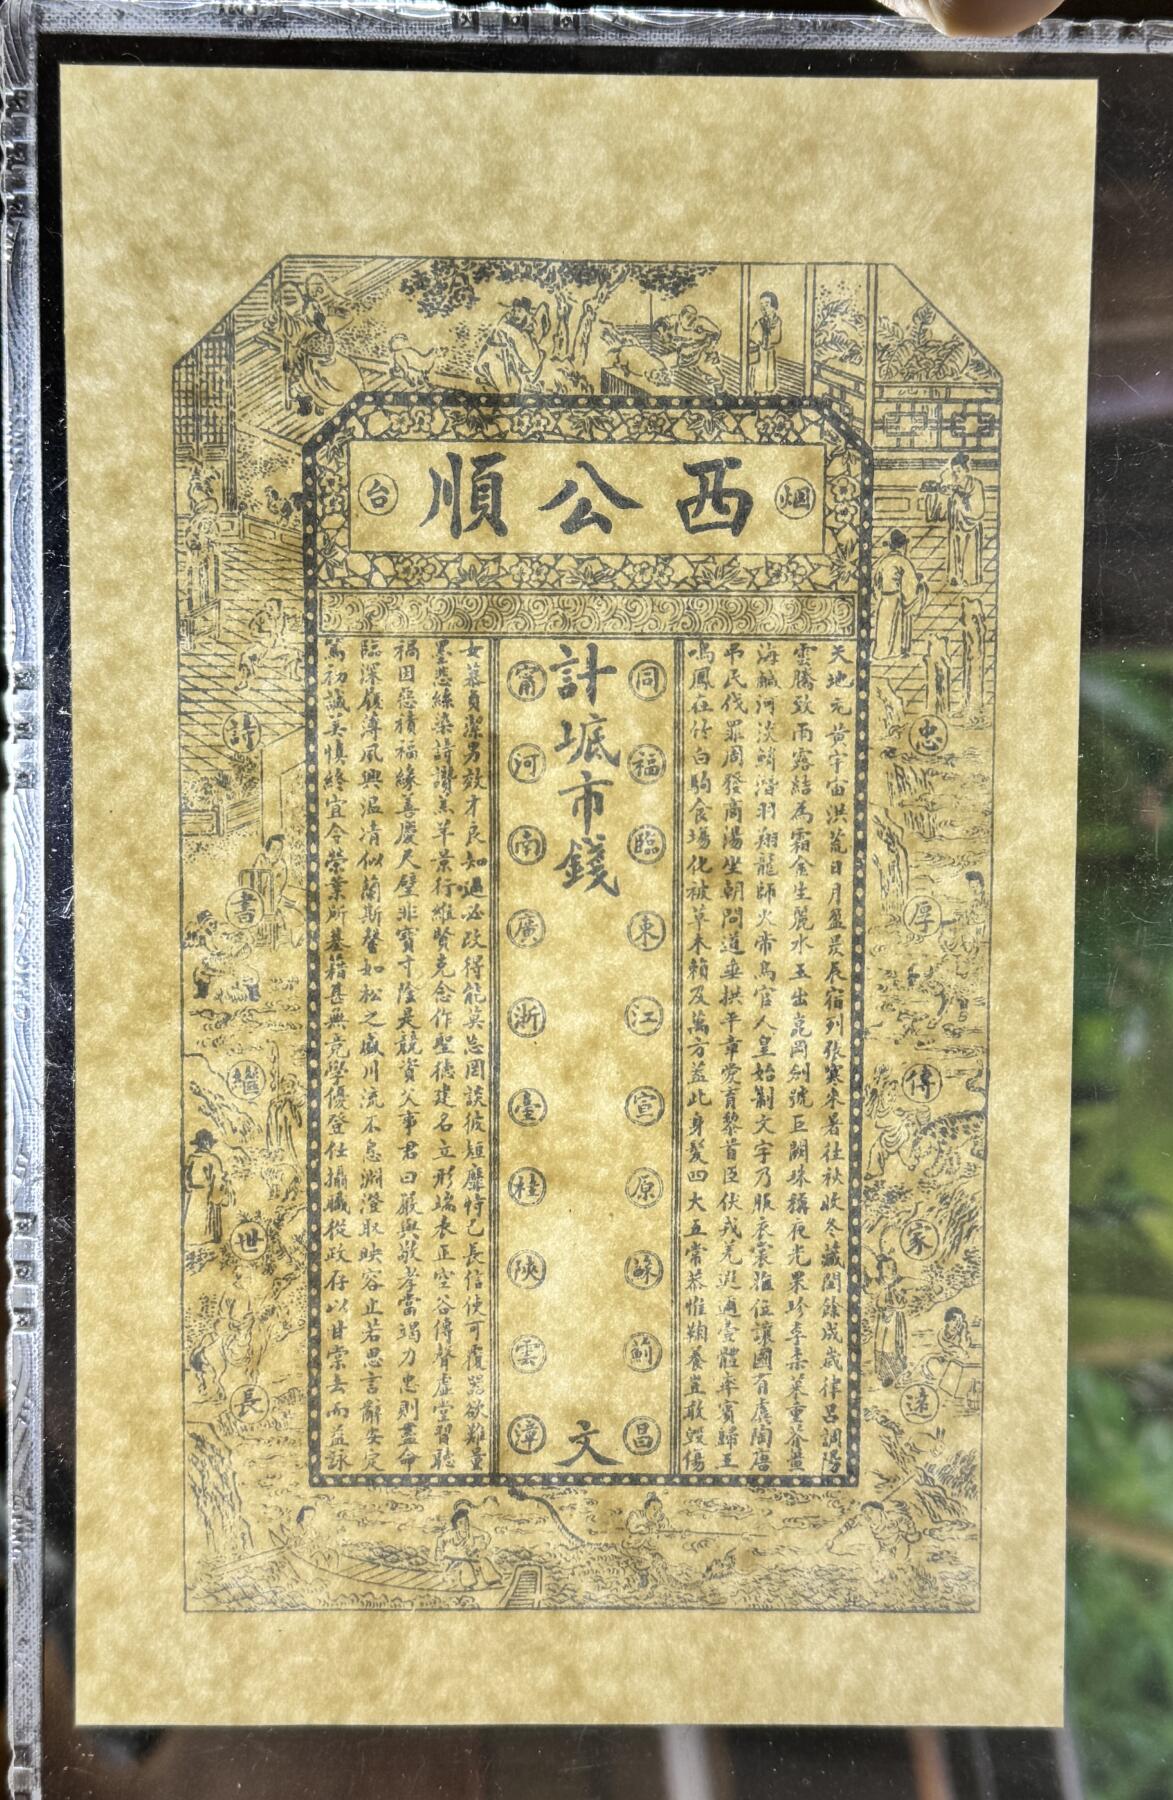 烟西公順台
忠厚傳家遠
天地元黃宇宙洪荒日月盈昃辰宿列張寒來暑往秋收冬藏閏餘成歲律呂調陽
雲騰致雨露結為霜金生麗水玉出崑岡劍號巨闕珠稱夜光果珍李柰菜重芥薑
海鹹河淡鱗潛羽翔龍師火帝鳥官人皇始制文字乃服衣裳推位讓國有虞陶唐
弔民伐罪周發商湯坐朝問道垂拱平章愛育黎首臣伏戎羌遐邇壹體率賓歸王
鳴鳳在竹白駒食場化被草木賴及萬方蓋此身髮四大五常恭惟鞠養豈敢毀傷
同福臨東江宣原蘇薊昌
計坻市錢文
甯河南廣浙臺桂陝雲漳
女慕貞潔男效才良知過必改得能莫忘罔談彼短靡恃己長信使可覆器欲難量
墨悲絲染詩讚羔羊景行維賢克念作聖德建名立形端表正空谷傳聲虛堂習聽
禍因惡積福緣善慶尺璧非寶寸陰是競資父事君曰嚴與敬孝當竭力忠則盡命
臨深履薄夙興溫凊似蘭斯馨如松之盛川流不息淵澄取映容止若思言辭安定
篤初誠美慎終宜令榮業所基藉甚無竟學優登仕攝職從政存以甘棠去而益詠
詩書繼世長